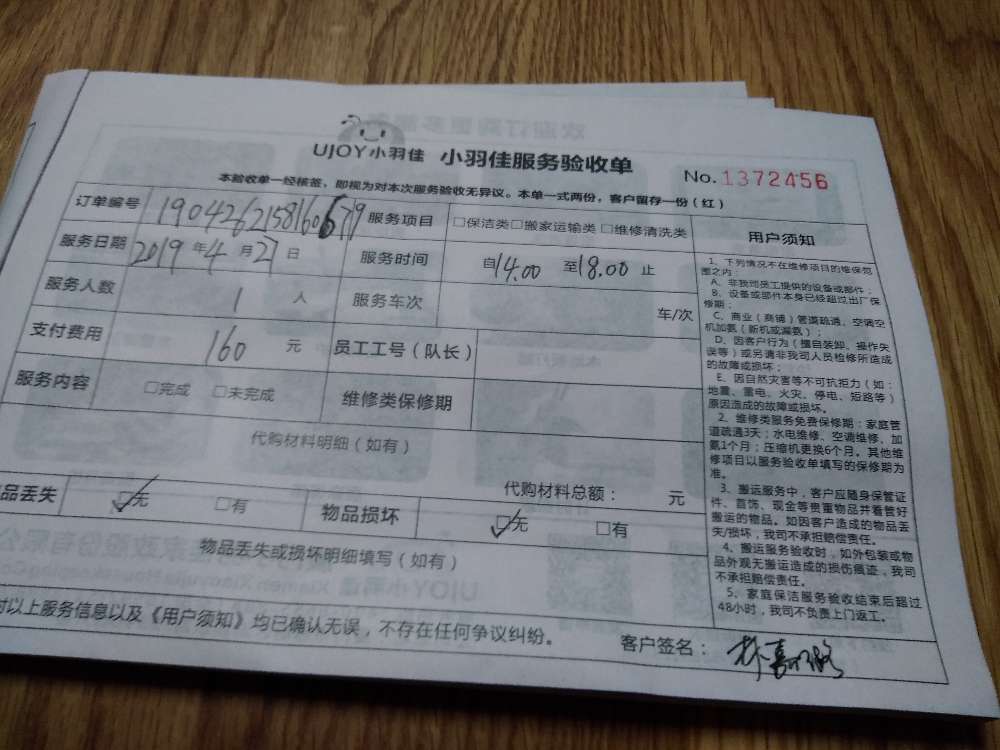 UJOY小羽佳 小羽佳服务验收单 No.1372456
本验收单一经核签，即视为对本次服务验收无异议。本单一式两份，客户留存一份（红）
订单编号 服务项目 □保洁类□搬家运输类 □维修清洗类
服务日期 2019 年 4 月 27 日 服务时间 自14.00 至18.00 止
服务人数 1 人 服务车次 车/次
支付费用 160 元 员工工号（队长）
服务内容 □完成 □未完成 维修类保修期
代购材料明细（如有）
代购材料总额： 元
品丢失 □无 □有 物品损坏 □无 □有
物品丢失或损坏明细填写（如有）
对以上服务信息以及《用户须知》均已确认无误，不存在任何争议纠纷。
客户签名：
用户须知
1、下列情况不在维修项目的维保范
围之内：
A、非我司员工提供的设备或部件；
B、设备或部件本身已经超过出厂保
修期；
C、商业（商铺）管道疏通、空调空
机加氨（新机或漏氨）；
D、因客户行为（擅自装卸、操作失
误等）或另请非我司人员检修所造成
的故障或损坏；
E、因自然灾害等不可抗拒力（如：
地震、雷电、火灾、停电、短路等）
原因造成的故障或损坏。
2、维修类服务免费保修期：家庭管
道疏通3天；水电维修、空调维修、加
氨1个月；压缩机更换6个月。其他维
修项目以服务验收单填写的保修期为
准。
3、搬运服务中，客户应随身保管证
件、首饰、现金等贵重物品并看管好
搬运的物品。如因客户造成的物品丢
失/损坏，我司不承担赔偿责任。
4、搬运服务验收时，如外包装或物
品外观无搬运造成的损伤痕迹，我司
不承担赔偿责任。
5、家庭保洁服务验收结束后超过
48小时，我司不负责上门返工。